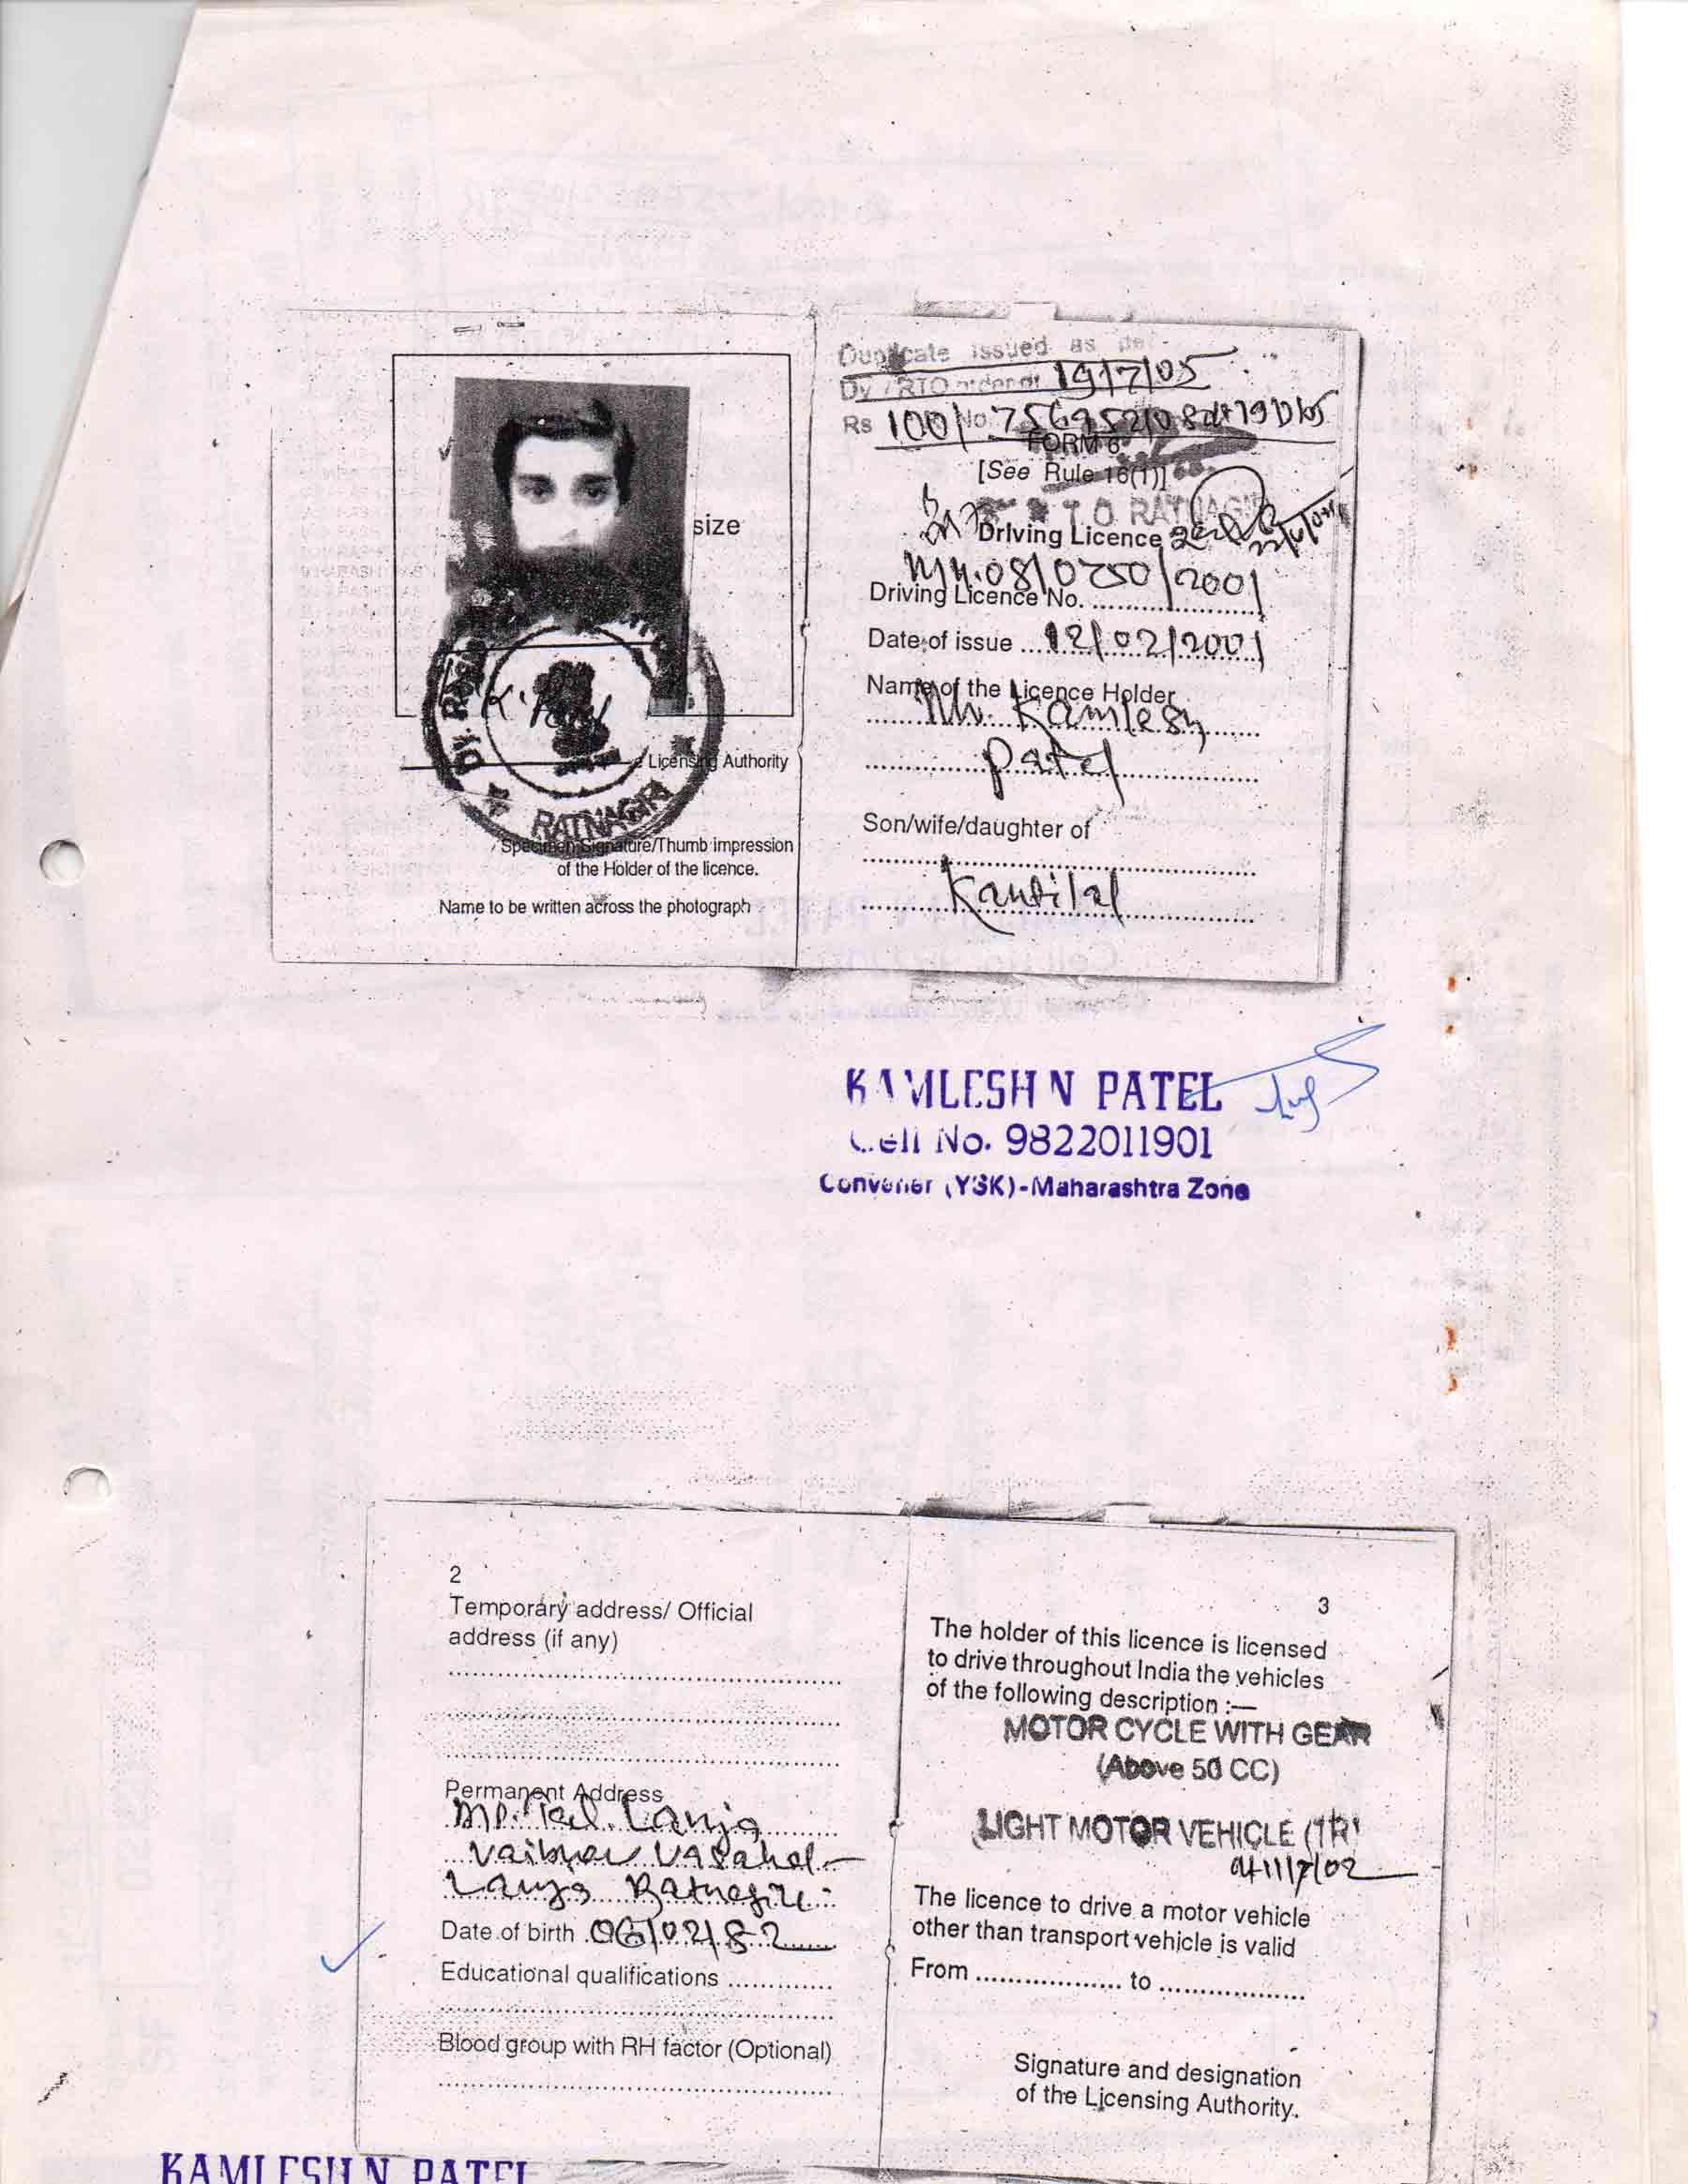 size
Dy. R
K. Patel
Licensing Authority
RATNAGIRI
Specimen Signature/Thumb impression
of the Holder of the licence.
Name to be written across the photograph
Duplicate issued as per
Dy / RTO order of 19/7/05
Rs 100/ No. 7569520
FORM 6
[See Rule 16(1)]
R T O. RATNAGIRI
Driving Licence
MH.08/0750/2001
Driving Licence No. ........................
Date of issue ...12/02/2001
Name of the Licence Holder
Mr. Kamlesh
Patel
Son/wife/daughter of
Kantilal
KAMLESH N PATEL
Cell No. 9822011901
Convener (YSK)-Maharashtra Zone
2
Temporary address/ Official
address (if any)
Permanent Address
Lanja
Lanja Ratnagiri
Date of birth 06/02/82
Educational qualifications ..............
Blood group with RH factor (Optional)
3
The holder of this licence is licensed
to drive throughout India the vehicles
of the following description :—
MOTOR CYCLE WITH GEAR
(Above 50 CC)
LIGHT MOTOR VEHICLE (TR)
The licence to drive a motor vehicle
other than transport vehicle is valid
From .................... to ....................
Signature and designation
of the Licensing Authority.
KAMLESH N PATEL